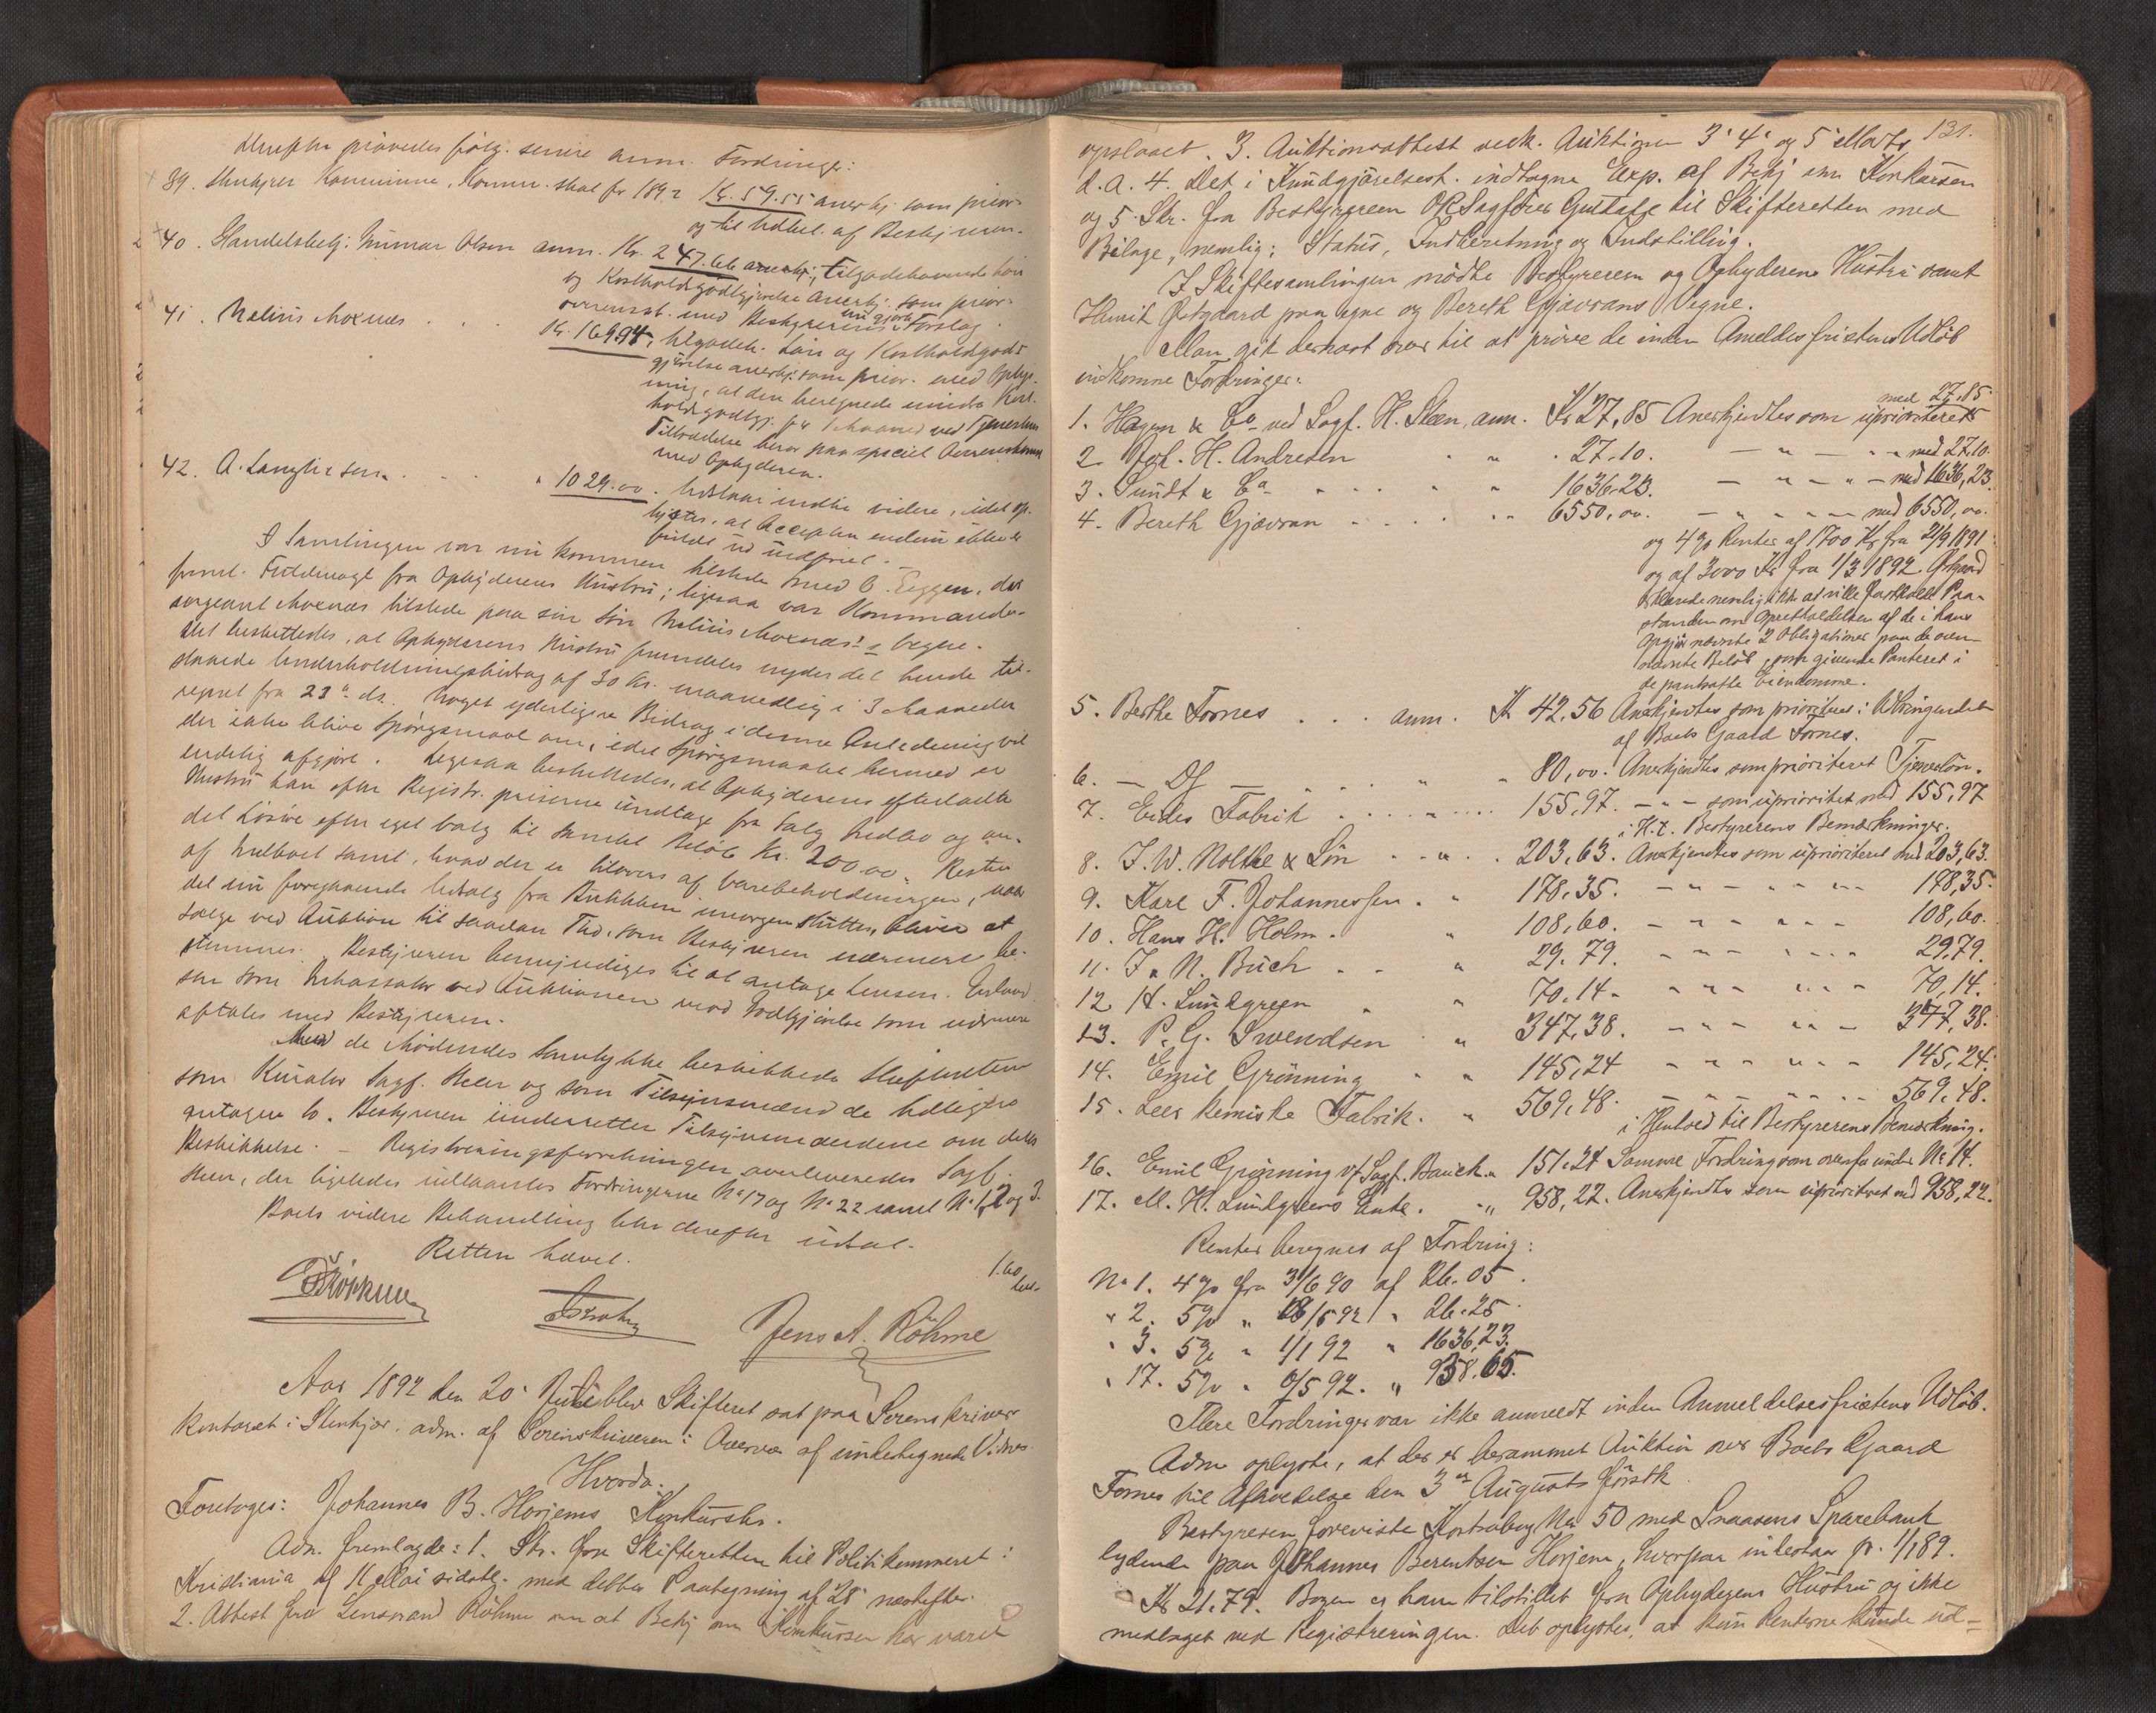 derefter prøvedes følg. senere anm. Fordringer:
39. Stenkjær Kommune, Komm. skat for 1892 Kr. 59.55 anerkj. som prior.
og til Udbet. af Bestyreren.
40. Handelsbetj: Gunnar Olsen anm. Kr. 247.66 anerkj., tilgodehavende Løn
og Kostholdsgodtgjørelse anerkj. som prior.
overensst. med Bestyrerens nu gjorte Forslag.
41. Nelius Moxnes . . . Kr. 169.94, tilgodeh. Løn og Kostholdsgodt-
gjørelse anerkj. som prior. med Oplys-
ning, at den beregnede mindre Kost-
holdsgodtgj. for 1 Maaned ved Tjenestens
Tiltrædelse beror paa speciel Overenskomst
med Opbyderen.
42. A. Langlie sen. . . . " 1029.00. Udstaar indtil videre, idet op-
lystes, at Accepten endnu ikke er
fuldt ud indfriet.
I Samlingen var nu kommen tilstede med O. Eggen, der
freml. Fuldmagt fra Opbyderens Hustru; ligesaa var Kommandér-
sergeant Moxnes tilstede paa sin Søn Nelius Moxnes's Vegne.
Det besluttedes, at Opbyderens Hustru fremdeles nyder det hende til-
staaede Underholdningsbidrag af 30 Kr. maanedlig i 3 Maaneder
regnet fra 23de ds. Noget yderligere Bidrag i denne Anledning vil
der ikke blive Spørgsmaal om, idet Spørgsmaalet hermed er
endelig afgjort. Ligesaa besluttedes, at Opbyderens efterladte
Hustru kan efter Registr. priserne undtage fra Salg Indbo og an-
det Løsøre efter eget Valg til samlet Beløb Kr. 200.00. Resten
af Indboet samt, hvad der er tilovers af Varebeholdningen, naar
det nu foregaaende Udsalg fra Butikken imorgen sluttes, bliver at
sælge ved Auktion til saadan Tid, som Bestyreren nærmere be-
stemmer. Bestyreren bemyndiges til at antage Lensm.
sen som Inkassator ved Auktionen mod Godtgjørelse som nærmere
aftales med Bestyreren.
Med de Mødendes Samtykke beskikkede Skifteretten
som Kurator Sagf. Steen og som Tilsynsmænd de tidligere
antagne to. Bestyreren underretter Tilsynsmændene om deres
Beskikkelse. – Registreringsforretningen overleveredes Sagf.
Steen, der ligeledes tilstilledes Fordringerne No 17 og No 22 samt No 1, 2 og 3.
Boets videre Behandling blev derefter udsat.
Retten hævet.
1.60
Jens A. Röhme
Aar 1892 den 20' Juli blev Skifteret sat paa Sorenskriver-
kontoret i Stenkjær, adm. af Sorenskriveren i Overvær af undertegnede Vidner.
Hvorda:
Foretoges: Johannes B. Horjems Konkursbo.
Adm. fremlagde: 1. Skr. fra Skifteretten til Politikammeret i
Kristiania af 11 Mai sidstl. med dettes Paategning af 28' næstefter.
2. Attest fra Lensmand Röhme om at Bekj. om Konkursen har været
131.
opslaaet. 3. Auktionsattest vedk. Auktionen 3' 4' og 5' Marts
d.a. 4. Det i Kundgjørelsest. indtagne Exp. af Bekj. om Konkursen
og 5. Skr. fra Bestyreren O.R.Sagfører Guttate til Skifteretten med
Bilage, nemlig: Status, Indberetning og Indstilling.
I Skiftesamlingen mødte Bestyreren og Opbyderens Hustru samt
Henrik Østgaard paa egne og Bereth Gjævrans Vegne.
Man gik dernæst over til at prøve de inden Anmeldesfristens Udløb
indkomne Fordringer:
1. Hagen & Co ved Sagf. H. Steen, anm. Kr 27,85 Anerkjendtes som uprioriteret med 27,85
2. Joh. H. Andresen " " 27.10. – " – " – med 27,10.
3. Sundt & Co " " 1636.23. – " – " – med 1636,23.
4. Bereth Gjævran . . . " " 6550,00. – " – " – med 6550,00.
og 4% Renter af 1700 Kr fra 21/9 1891
og af 3000 Kr fra 1/3 1892. Østgaard
erklærede nemlig ikke at ville fastholde Paa-
standen om Opretholdelsen af de i hans
Opgjør nævnte 2 Obligationer paa de oven-
nævnte Beløb, som givende Panteret i
de pantsatte Eiendomme.
5. Berthe Fornes . . . anm. Kr 42,56 Anerkjendtes som prioriteret i Udbringendet
af Boets Gaard Fornes.
6. – Do – . . . " " 80,00. Anerkjendtes som prioriteret Tjenerløn.
7. Eeides Fabrik . . . . . . 155,97. – " – som uprioritet med 155,97
i H.t. Bestyrerens Bemærkninger.
8. J. W. Noltke & Søn . . " . . 203,63. Anerkjendtes som uprioriteret med 203,63.
9. Karl F. Johannessen . " 178,35. – " – " – " 178,35.
10. Hans H. Holm . " 108,60. – " – " – " 108,60.
11. J. N. Buch . . " 29.79. – " – " – " 29,79.
12 H. Lundgreen " " 70.14. – " – " – " 70,14.
13. P. G. Swendsen " 347,38. – " – " – " 347,38.
14. Emil Grönning " " 145,24 – " – " – " 145,24.
15. Lees kemiske Fabrik. " 569,48. – " – " – " 569,48.
i Henhold til Bestyrerens Bemærkning.
16. Emil Grönning v/ Sagf. Bauck " 151.24 Samme Fordring som ovenfor under No 14.
17. M. H. Lundgreens Enke. " 958,22. Anerkjendtes som uprioriteret med 958,22.
Renter beregnes af Fordring:
No 1. 4% fra 3/6 90 af 26.05.
" 2. 5% " 18/5 92 " 26.25
" 3. 5% " 1/1 92 " 1636,23.
" 17. 5% " 6/5 92. " 938.65.
Flere Fordringer var ikke anmeldt inden Anmeldelsesfristens Udløb.
Adm. oplyste, at der er berammet Auktion over Boets Gaard
Fornes til Afholdelse den 3die Augusts førstk.
Bestyreren foreviste Kontrabog No 50 med Snaasens Sparebank
lydende paa Johannes Berentsen Horjem, hvorpaa indestaar pr. 1/1 89.
Kr 21.79. Bogen er ham tilstillet fra Opbyderens Hustru og ikke
medtaget ved Registreringen. Det oplystes, at kun Renterne kunde ud-